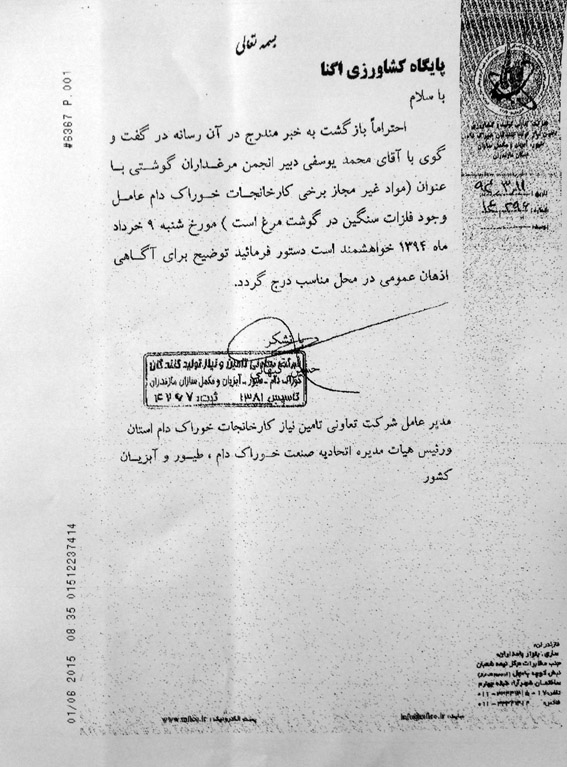 بسمه تعالی
پایگاه کشاورزی اگنا
با سلام
احتراماً بازگشت به خبر مندرج در آن رسانه در گفت و
گوی با آقای محمد یوسفی دبیر انجمن مرغداران گوشتی با
عنوان (مواد غیر مجاز برخی کارخانجات خوراک دام عامل
وجود فلزات سنگین در گوشت مرغ است ) مورخ شنبه ۹ خرداد
ماه ۱۳۹۴ خواهشمند است دستور فرمائید توضیح برای آگاهی
اذهان عمومی در محل مناسب درج گردد.
با تشکر
تامین و نیاز تولید کنندگان
خوراک دام - طیور - آبزیان و مکمل سازان مازندران
تاسیس ۱۳۸۱ ثبت: ۴۲۶۷
مدیر عامل شرکت تعاونی تامین نیاز کارخانجات خوراک دام استان
ورئیس هیات مدیره اتحادیه صنعت خوراک دام ، طیور و آبزیان
کشور
#8367 P.001
01/06 2015 08:35 01512237414
مازندران:
جنب مخابرات مرکز نیمه شعبان
پست الکترونیک:
سایت: